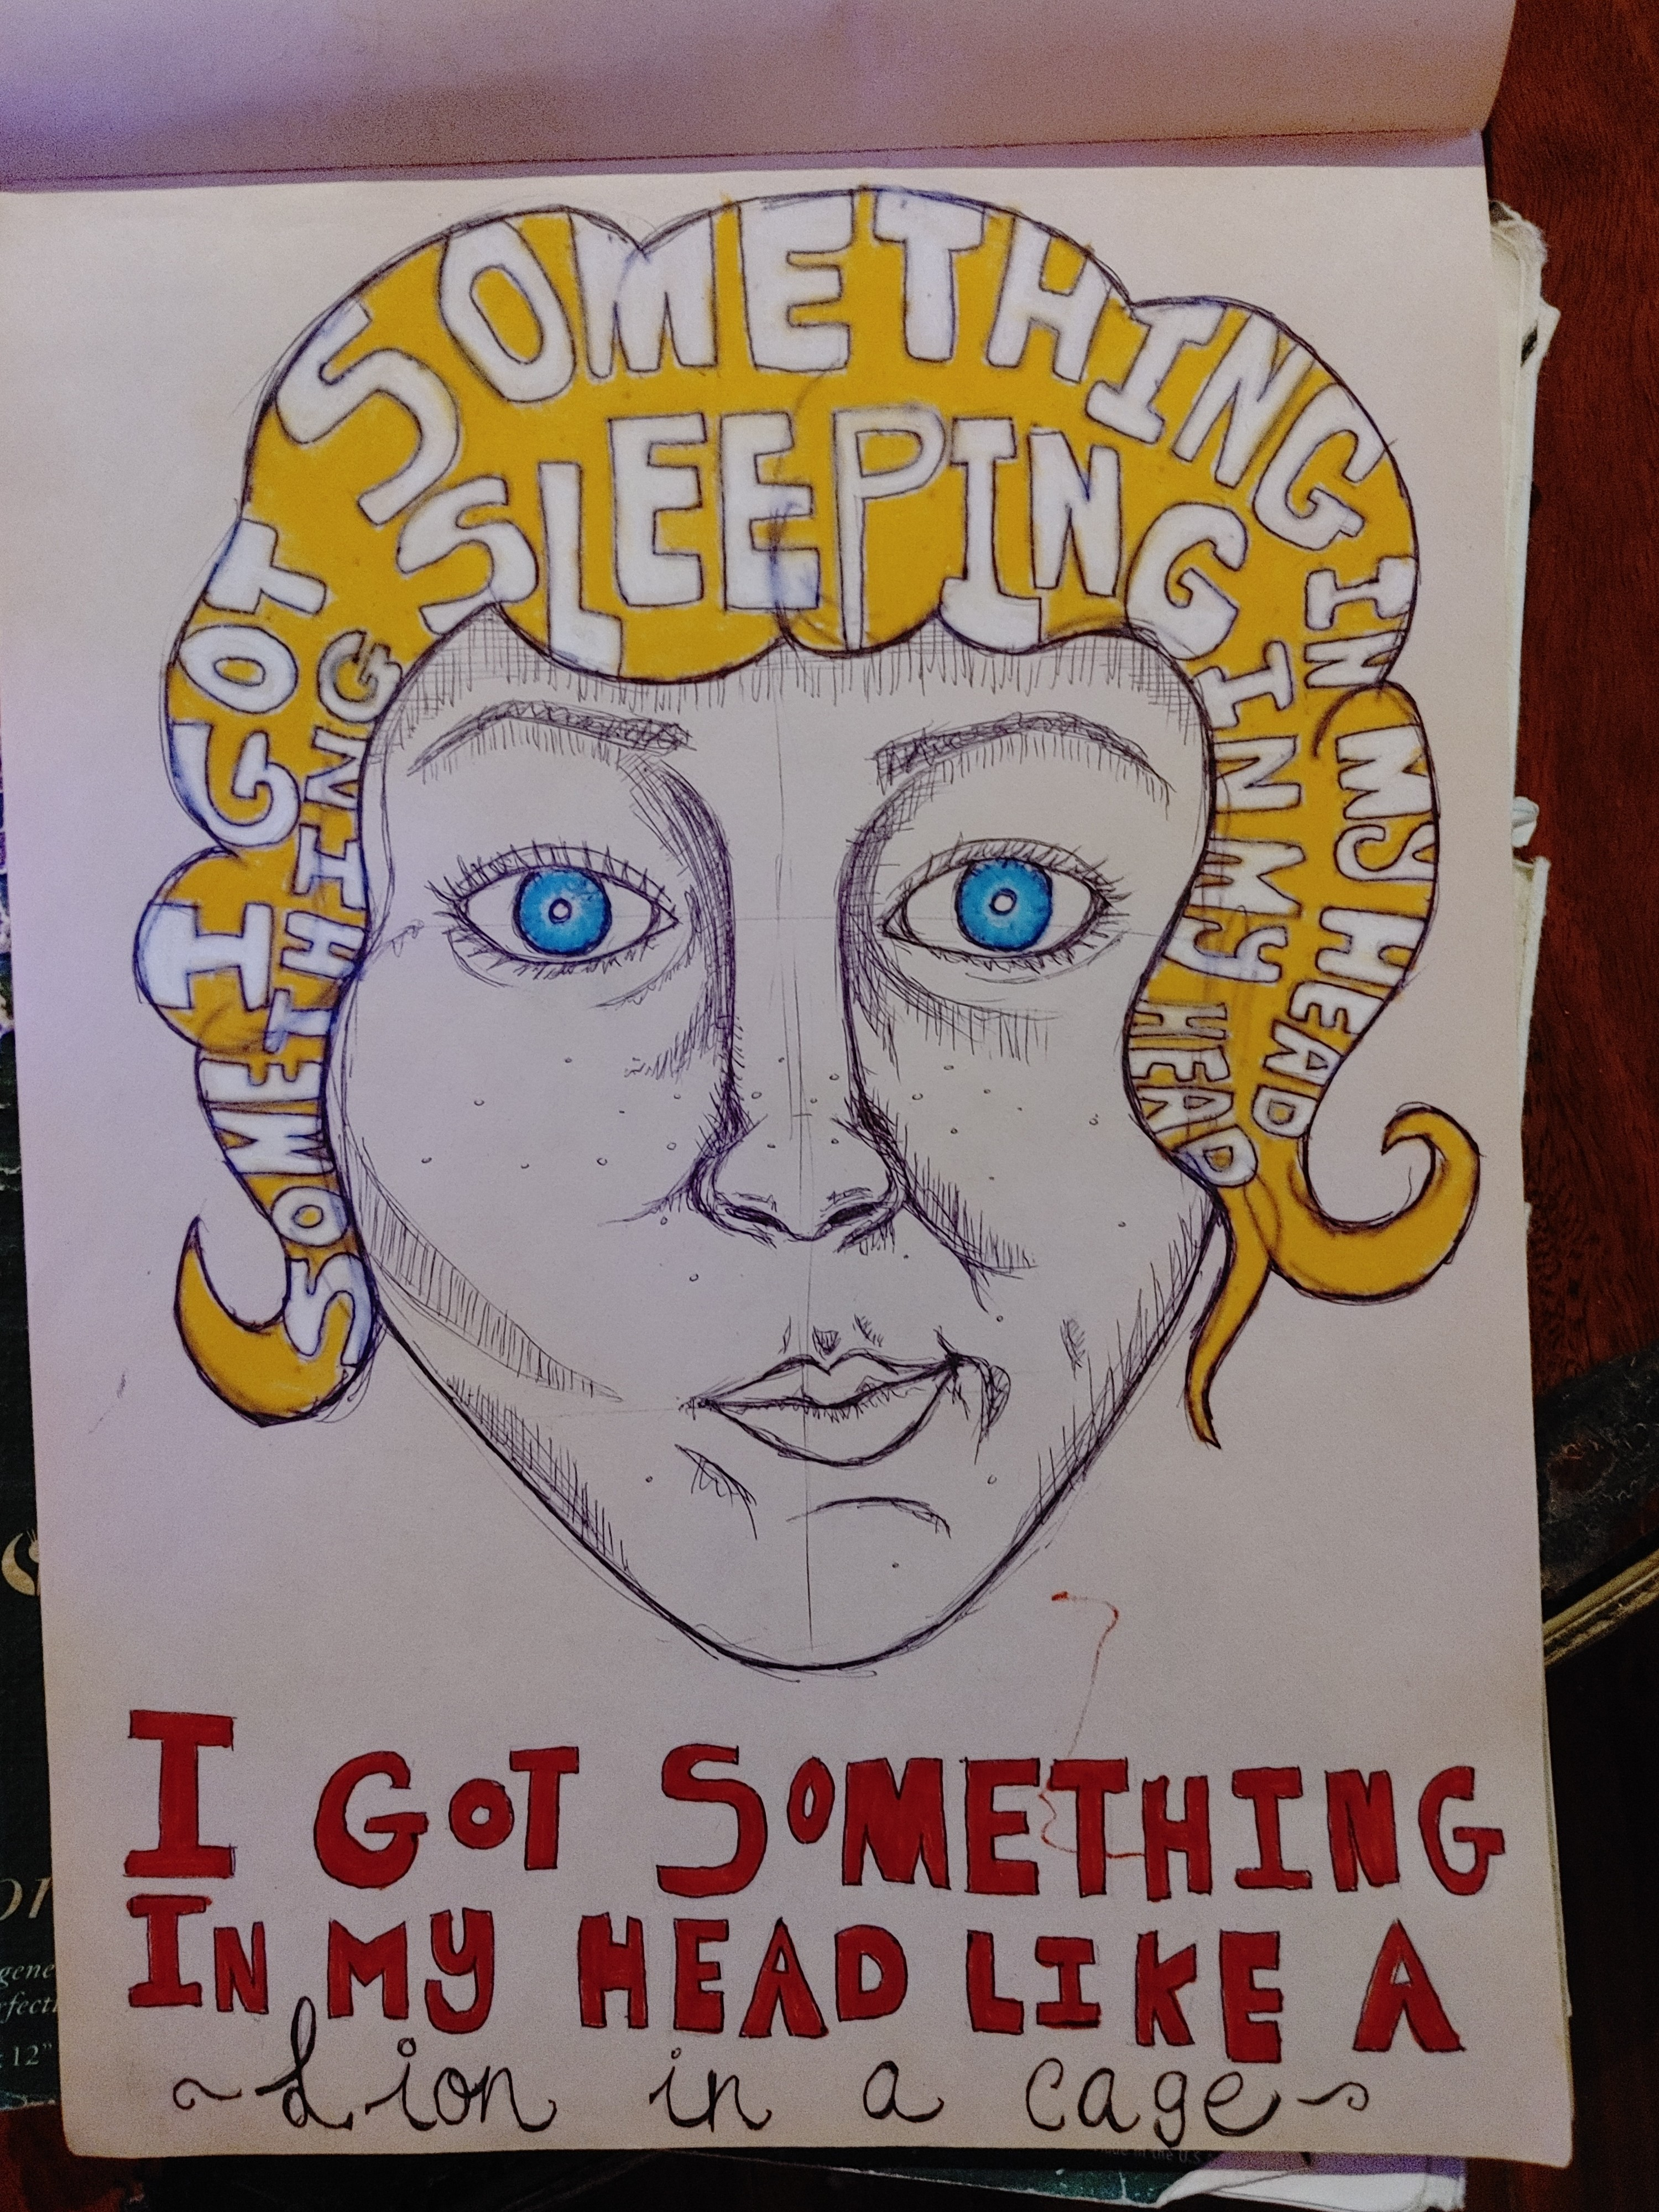 I GOT SOMETHING IN MY HEAD
SOMETHING SLEEPING IN MY HEAD
I GOT SOMETHING
IN MY HEAD LIKE A
~Lion in a cage~
12"